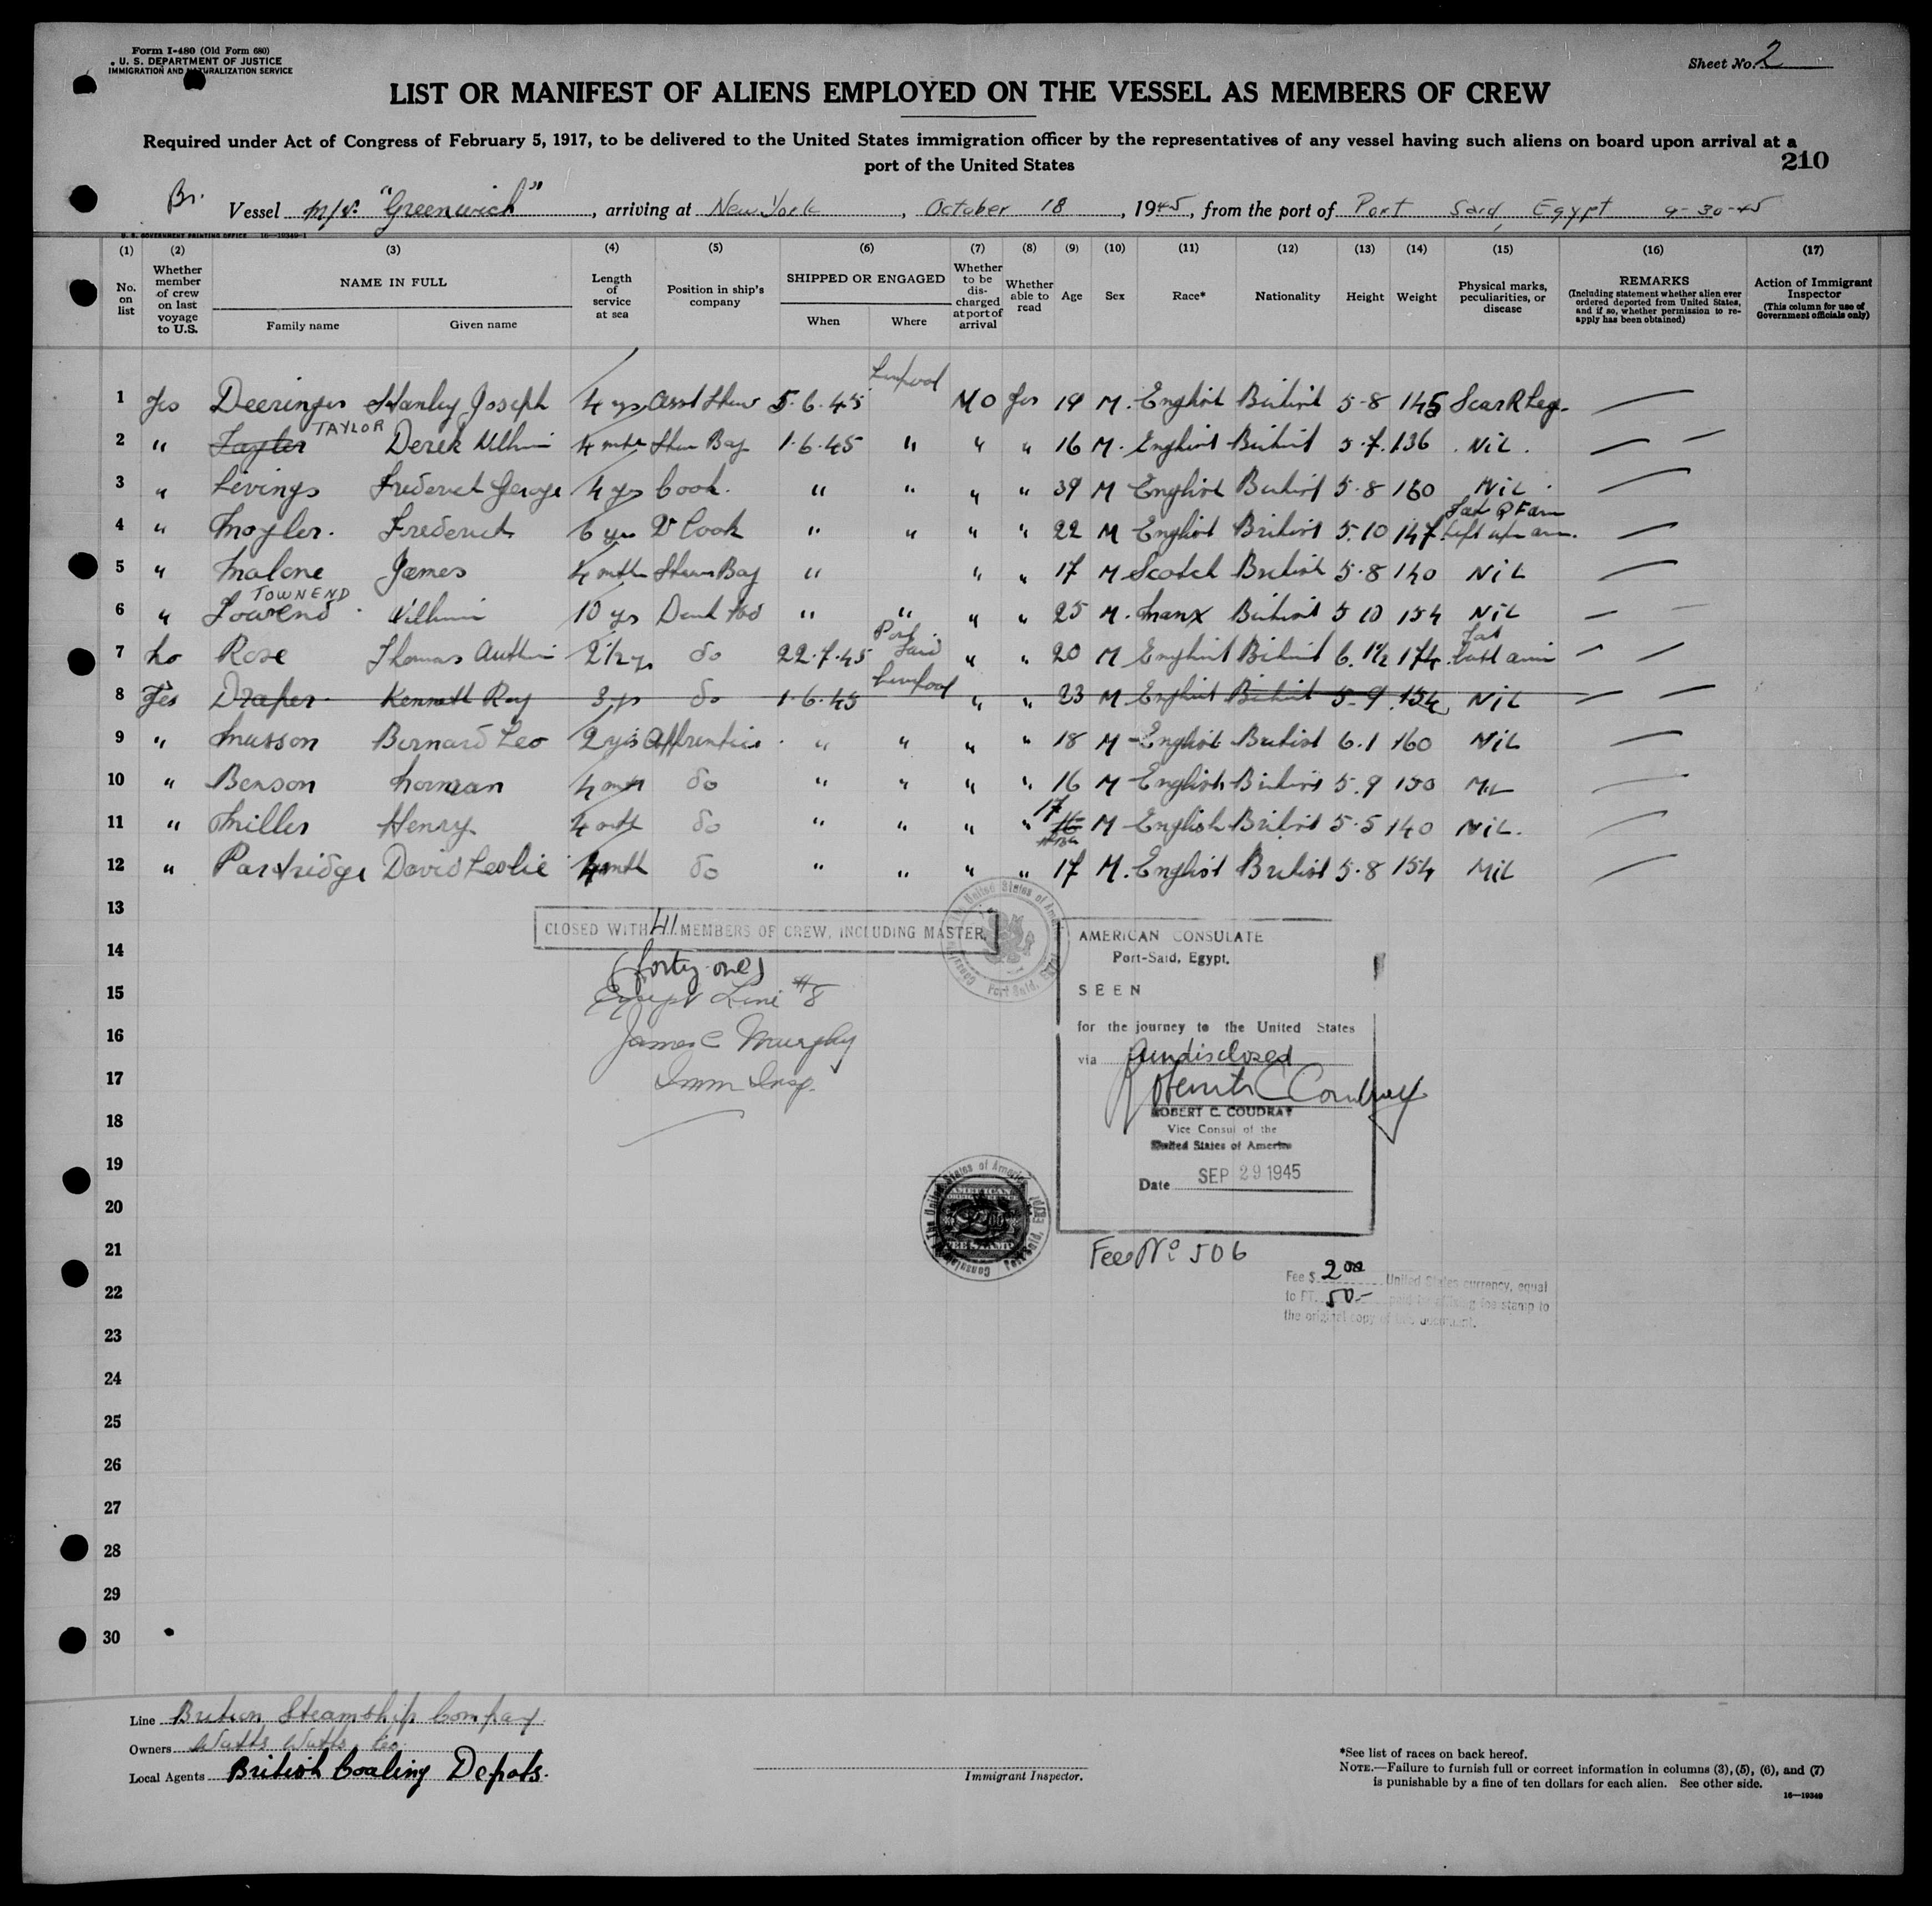 Form I-480 (Old Form 680)
U. S. DEPARTMENT OF JUSTICE
IMMIGRATION AND NATURALIZATION SERVICE
Sheet No. 2
LIST OR MANIFEST OF ALIENS EMPLOYED ON THE VESSEL AS MEMBERS OF CREW
Required under Act of Congress of February 5, 1917, to be delivered to the United States immigration officer by the representatives of any vessel having such aliens on board upon arrival at a
port of the United States
210
Br. Vessel M/V. "Greenwich", arriving at New York, October 18, 1945, from the port of Port Said, Egypt 9-30-45
U. S. GOVERNMENT PRINTING OFFICE 16—19349-1
(1) (2) (3) (4) (5) (6) (7) (8) (9) (10) (11) (12) (13) (14) (15) (16) (17)
No. on list
Whether member of crew on last voyage to U.S.
NAME IN FULL
Family name
Given name
Length of service at sea
Position in ship's company
SHIPPED OR ENGAGED
When
Where
Whether to be discharged at port of arrival
Whether able to read
Age
Sex
Race*
Nationality
Height
Weight
Physical marks, peculiarities, or disease
REMARKS
(Including statement whether alien ever ordered deported from United States, and if so, whether permission to re-apply has been obtained)
Action of Immigrant Inspector
(This column for use of Government officials only)
1 Yes Deeringer Stanley Joseph 4 yrs Asst Stew 5.6.45 Liverpool No Yes 19 M. English British 5-8 145 Scar R Leg.
2 " Tayler TAYLOR Derek 4 mth Stew Boy 1.6.45 " " " 16 M. English British 5.7. 136 Nil.
3 " Livings Frederick George 4 yrs Cook. " " " " 39 M English British 5.8 160 Nil
4 " Moyler. Frederick 6 yrs 2 Cook " " " " 22 M English British 5.10 147 left arm.
5 " Malone James 4 mth Stew Boy " " " 17 M Scotch British 5.8 140 Nil
6 " Townend TOWNEND William 10 yrs " " " " 25 M. Manx British 5 10 154 Nil
7 No Rose Thomas 2 1/2 yrs do 22.7.45 Port Said " " 20 M English British 6. 1 1/2 174 arm
8 Yes Draper Kenneth Roy 3 yrs do 1.6.45 Liverpool " " 23 M English British 5.9 154 Nil
9 " Musson Bernard Leo 2 yrs Apprentice " " " " 18 M English British 6.1 160 Nil
10 " Benson Norman 4 mth do " " " " 16 M English British 5.9 150 Nil
11 " Miller Henry 4 mth do " " " " 17 16 M English British 5.5 140 Nil.
12 " Partridge David Leslie 4 mth do " " " " 17 M. English British 5.8 154 Nil
13
14
15
16
17
18
19
20
21
22
23
24
25
26
27
28
29
30
CLOSED WITH 41 MEMBERS OF CREW, INCLUDING MASTER.
(forty-one)
Except Line #8
James C Murphy
Imm Insp.
AMERICAN CONSULATE
Port-Said, Egypt.
SEEN
for the journey to the United States
via undisclosed
ROBERT C. COUDRAY
Vice Consul of the
United States of America
Date SEP 29 1945
AMERICAN
FEE STAMP
Fee No. 506
Fee $ 2 00 United States currency, equal
to PT. 50.- paid by affixing fee stamp to
the original copy of this document.
Line Britain Steamship Company
Owners Watts Watts Co.
Local Agents British Coaling Depots.
Immigrant Inspector.
*See list of races on back hereof.
NOTE.—Failure to furnish full or correct information in columns (3), (5), (6), and (7)
is punishable by a fine of ten dollars for each alien. See other side.
16—19349